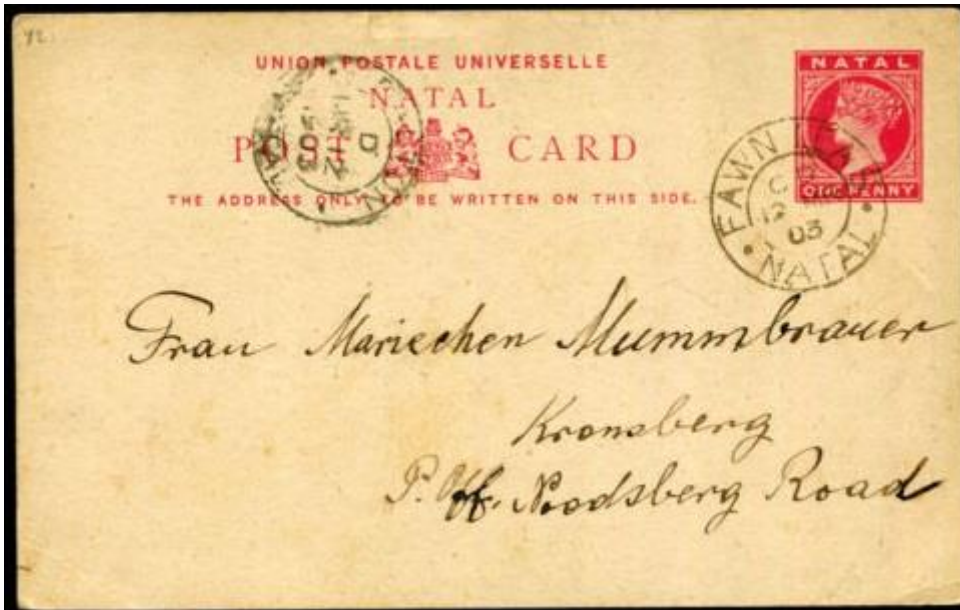 Y2.
UNION POSTALE UNIVERSELLE
NATAL
POST CARD
THE ADDRESS ONLY TO BE WRITTEN ON THIS SIDE.
NATAL
ONE PENNY
FAWN LEAS
C
12
03
NATAL
D
03
Frau Mariechen Mummbrauer
Kronsberg
P. Off. Noodsberg Road